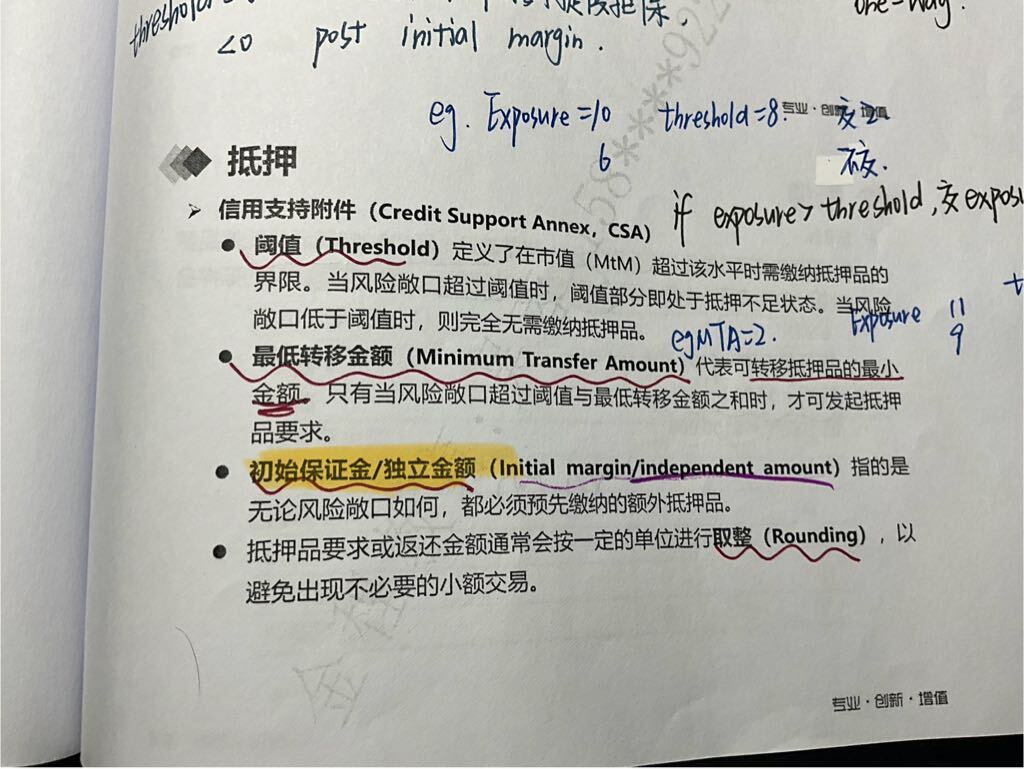 threshold
one-way.
<0 post initial margin.
eg. Exposure=10 threshold=8. 交2
专业·创新·增值
6 不交.
抵押
信用支持附件（Credit Support Annex, CSA）
if exposure > threshold, 交expos
阈值（Threshold）定义了在市值（MtM）超过该水平时需缴纳抵押品的
界限。当风险敞口超过阈值时，阈值部分即处于抵押不足状态。当风险
敞口低于阈值时，则完全无需缴纳抵押品。
eg MTA=2. Exposure 11
9
最低转移金额（Minimum Transfer Amount）代表可转移抵押品的最小
金额。只有当风险敞口超过阈值与最低转移金额之和时，才可发起抵押
品要求。
初始保证金/独立金额（Initial margin/independent amount）指的是
无论风险敞口如何，都必须预先缴纳的额外抵押品。
抵押品要求或返还金额通常会按一定的单位进行取整（Rounding），以
避免出现不必要的小额交易。
专业·创新·增值